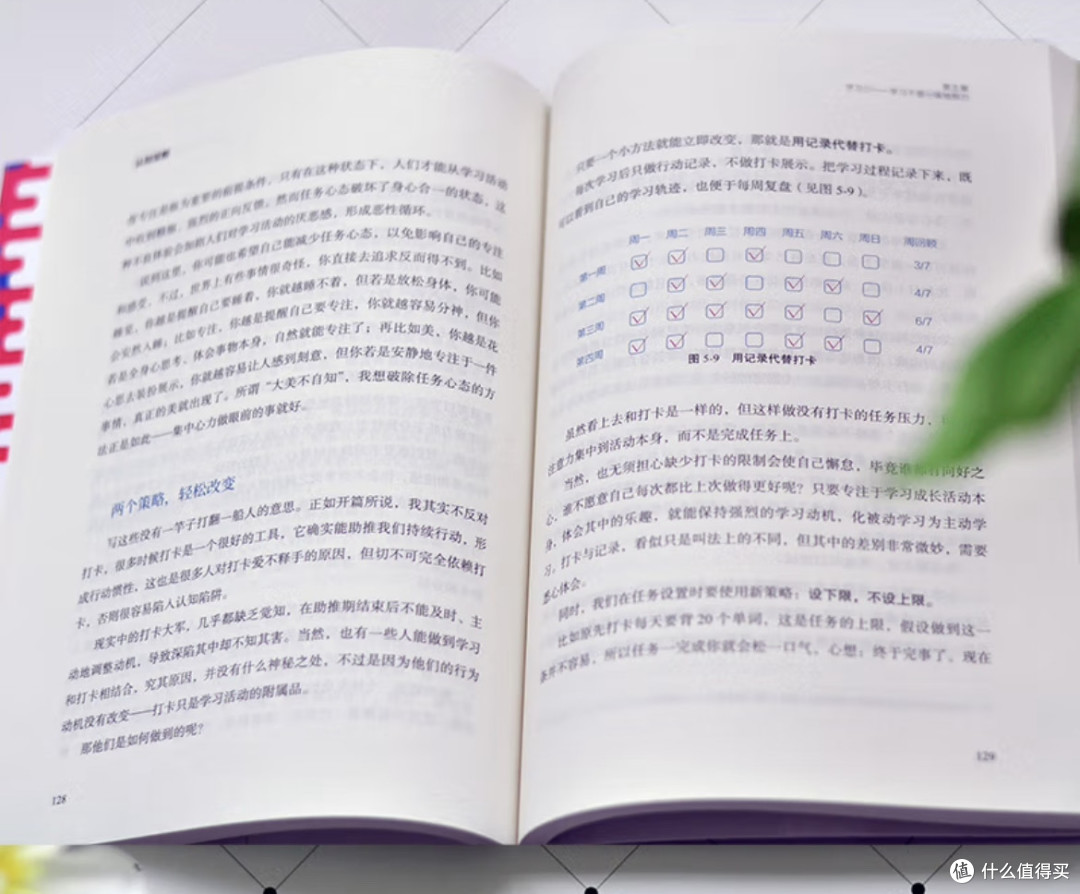 认知觉醒
专注是极为重要的前提条件，只有在这种状态下，人们才能从学习活动
中收到精细、强烈的正向反馈。然而任务心态破坏了身心合一的状态，这
种不良体验会加剧人们对学习活动的厌恶感，形成恶性循环。
说到这里，你可能也希望自己能减少任务心态，以免影响自己的专注
和感受。不过，世界上有些事情很奇怪，你直接去追求反而得不到。比如
睡觉，你越是提醒自己要睡着，你就越睡不着，但若是放松身体，你可能
会安然入睡；比如专注，你越是提醒自己要专注，你就越容易分神，但你
若是全身心思考、体会事物本身，自然就能专注了；再比如美，你越是花
心思去装扮展示，你就越容易让人感到刻意，但你若是安静地专注于一件
事情，真正的美就出现了。所谓“大美不自知”，我想破除任务心态的方
法正是如此——集中心力做眼前的事就好。
两个策略，轻松改变
写这些没有一竿子打翻一船人的意思。正如开篇所说，我其实不反对
打卡，很多时候打卡是一个很好的工具，它确实能助推我们持续行动，形
成行动惯性，这也是很多人对打卡爱不释手的原因，但切不可完全依赖打
卡，否则很容易陷入认知陷阱。
现实中的打卡大军，几乎都缺乏觉知，在助推期结束后不能及时、主
动地调整动机，导致深陷其中却不知其害。当然，也有一些人能做到学习
和打卡相结合，究其原因，并没有什么神秘之处，不过是因为他们的行为
动机没有改变——打卡只是学习活动的附属品。
那他们是如何做到的呢？
128
第五章
只要一个小方法就能立即改变，那就是用记录代替打卡。
每次学习后只做行动记录，不做打卡展示。把学习过程记录下来，既
可以看到自己的学习轨迹，也便于每周复盘（见图 5-9）。
周一 周二 周三 周四 周五 周六 周日 周回顾
第一周 3/7
第二周 4/7
第三周 6/7
第四周 4/7
图 5-9 用记录代替打卡
虽然看上去和打卡是一样的，但这样做没有打卡的任务压力，
注意力集中到活动本身，而不是完成任务上。
当然，也无须担心缺少打卡的限制会使自己懈怠，毕竟谁都有向好之
心，谁不愿意自己每次都比上次做得更好呢？只要专注于学习成长活动本
身，体会其中的乐趣，就能保持强烈的学习动机，化被动学习为主动学
习。打卡与记录，看似只是叫法上的不同，但其中的差别非常微妙，需要
悉心体会。
同时，我们在任务设置时要使用新策略：设下限，不设上限。
比如原先打卡每天要背 20 个单词，这是任务的上限，假设做到这一
条并不容易，所以任务一完成你就会松一口气，心想：终于完事了。现在
129
值 什么值得买